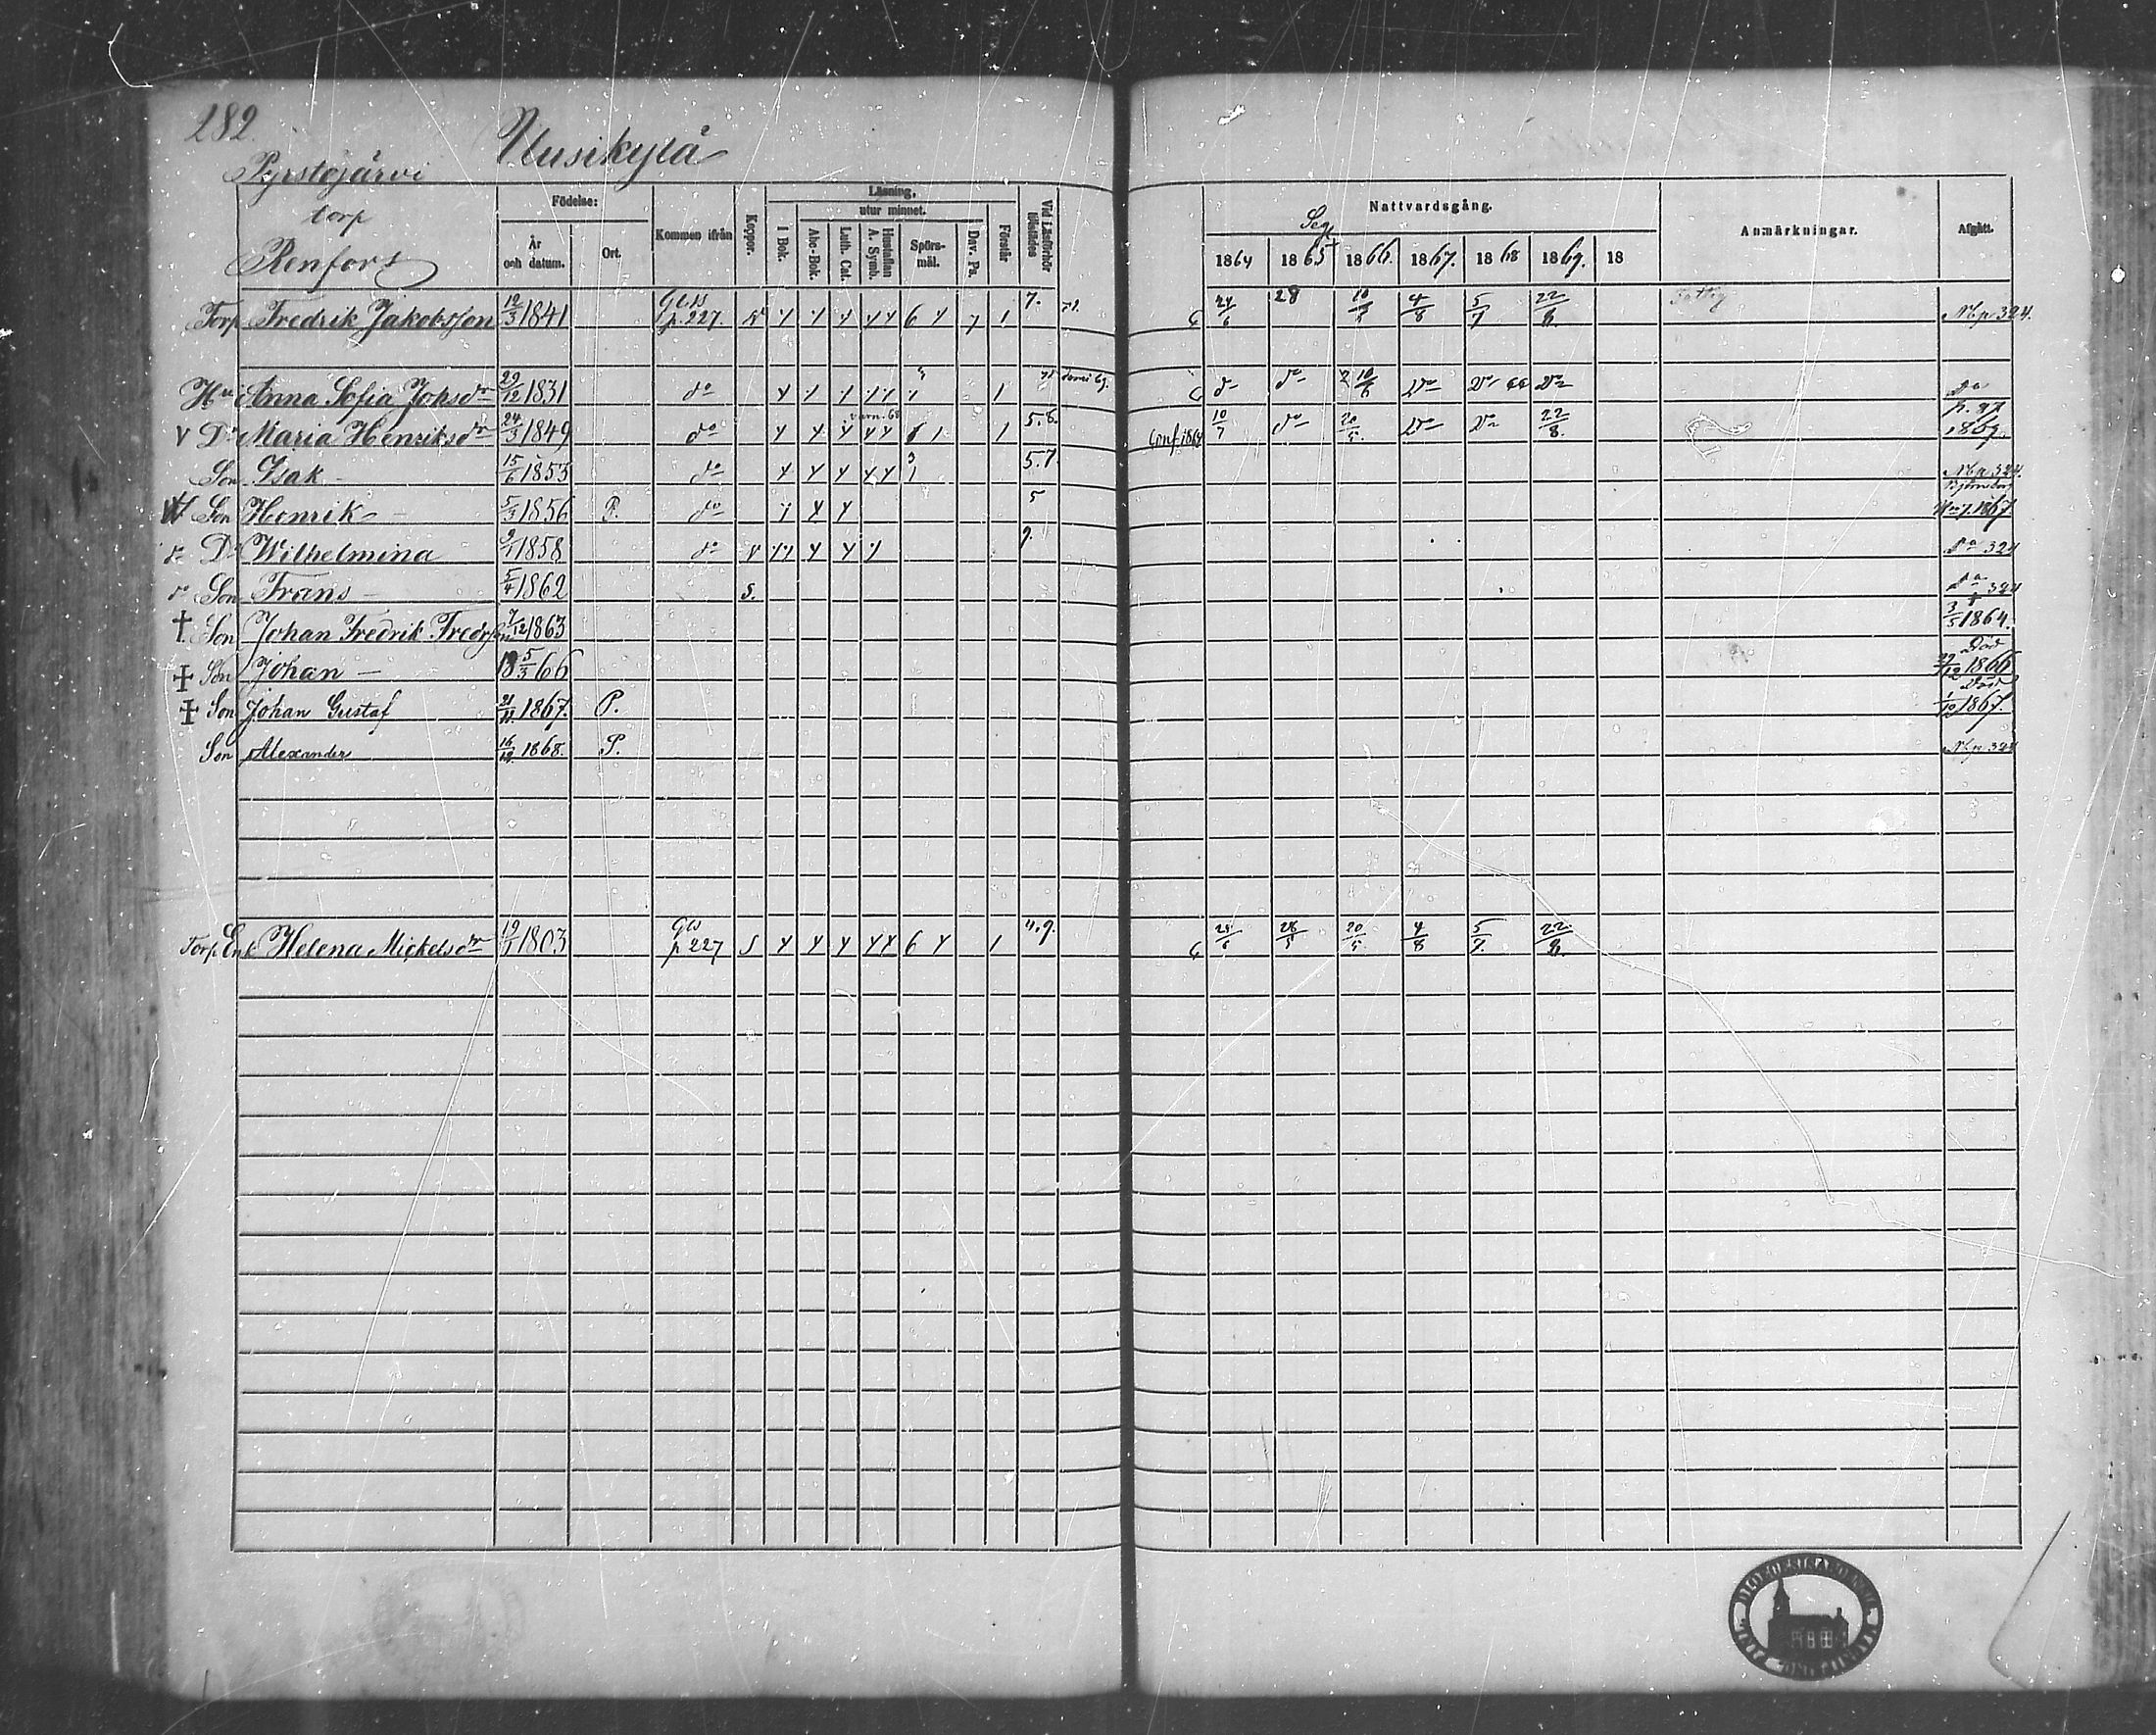 282.
Uusikylä
Pyrstöjärvi
torp
Renfors
Födelse:
År och datum.
Ort.
Kommen ifrån
Koppor.
Läsning,
utur minnet.
I Bok.
Abc-Bok.
Luth. Cat.
Hustaflan A. Symb.
Spörs-mål.
Dav. Ps.
Förstår
Vid Läsförhör
Nattvardsgång.
1864 1865 1866. 1867. 1868 1869. 18
Anmärkningar.
Afgått.
Torp Fredrik Jakobsson 12/3 1841 p. 227. 6 1 7. 24/6 28 4/8 5/7 22/8. Nb p 324.
Hu Anna Sofia Johsdr 29/12 1831 do 1 do do do do do do
V Dr Maria Henriksdr 24/3 1849 do 1 5.8. Conf. 1864 10/7 do 20/5. do do 22/8. 1869.
Son Isak 15/6 1853 do 3 5.7. Nb p 324.
Son Henrik 5/3 1856 P. do 5 1867
do Dr Wilhelmina 2/1 1858 do 9. do 324
do Son Frans 5/4 1862 S. do 324
† Son Johan Fredrik Fredrsson 7/12 1863 † 3/5 1864.
† Son Johan 18 5/3 66 Död 1866
† Son Johan Gustaf 21/11 1867. P. Död 1/12 1867.
Son Alexander 16/12 1868. P. Nb p 324
Torp Enk Helena Mickelsdr 1803 p 227 S 6 1 28/5 20/5. 4/8 5/7. 22/8.